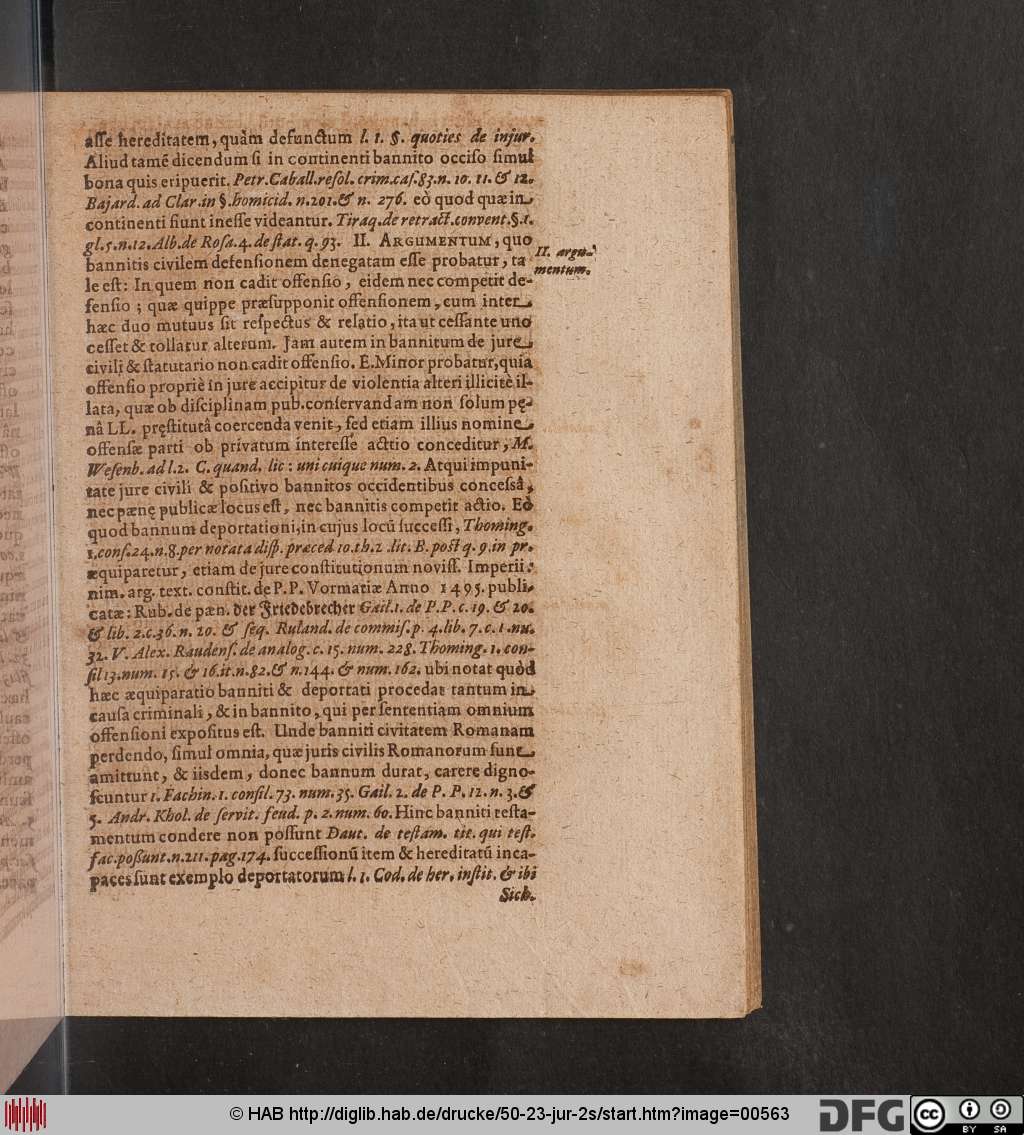 asse hereditatem, quàm defunctum l. 1. §. quoties de injur.
Aliud tamē dicendum si in continenti bannito occiso simul
bona quis eripuerit. Petr. Caball. resol. crim. cas. 83. n. 10. 11. & 12.
Bajard. ad Clar. in §. homicid. n. 201. & n. 276. eò quod quæ in
continenti fiunt inesse videantur. Tiraq. de retract. convent. §. 1.
gl. 5. n. 12. Alb. de Rosa. 4. de stat. q. 93. II. ARGUMENTUM, quo
II. argu-
bannitis civilem defensionem denegatam esse probatur, ta
mentum.
le est: In quem non cadit offensio, eidem nec competit de-
fensio; quæ quippe præsupponit offensionem, cum inter
hæc duo mutuus sit respectus & relatio, ita ut cessante uno
cesset & tollatur alterum. Jam autem in bannitum de jure
civili & statutario non cadit offensio. E. Minor probatur, quia
offensio propriè in jure accipitur de violentia alteri illicitè il-
lata, quæ ob disciplinam pub. conservandam non solum pę-
nâ LL. pręstitutâ coercenda venit, sed etiam illius nomine
offensæ parti ob privatum interesse actio conceditur, M.
Wesenb. ad l. 2. C. quand. lic: uni cuique num. 2. Atqui impuni-
tate jure civili & positivo bannitos occidentibus concessâ,
nec pænę publicæ locus est, nec bannitis competit actio. Eò
quod bannum deportationi, in cujus locū successi, Thoming.
1. cons. 24. n. 8. per notata disp. præced 10. th. 2. lit. B. post q. 9. in pr.
æquiparetur, etiam de jure constitutionum noviss. Imperii:
nim. arg. text. constit. de P. P. Vormatiæ Anno 1495. publi-
catæ: Rub. de pæn. der Friedebrecher Gail. 1. de P. P. c. 19. & 20.
& lib. 2. c. 36. n. 20. & seq. Ruland. de commis. p. 4. lib. 7. c. 1. nu.
32. V. Alex. Raudens. de analog. c. 15. num. 228. Thoming. 1. con-
sil 13. num. 15. & 16. it. n. 82. & n. 144. & num. 162. ubi notat quòd
hæc æquiparatio banniti & deportati procedat tantum in
causa criminali, & in bannito, qui per sententiam omnium
offensioni expositus est. Unde banniti civitatem Romanam
perdendo, simul omnia, quæ juris civilis Romanorum sunt
amittunt, & iisdem, donec bannum durat, carere digno-
scuntur 1. Fachin. 1. consil. 73. num. 35. Gail. 2. de P. P. 12. n. 3. &
5. Andr. Khol. de servit. feud. p. 2. num. 60. Hinc banniti testa-
mentum condere non possunt Daut. de testam. tit. qui test.
fac. poßunt. n. 211. pag. 174. successionū item & hereditatū inca-
paces sunt exemplo deportatorum l. 1. Cod. de her. instit. & ibi
Sich.
© HAB http://diglib.hab.de/drucke/50-23-jur-2s/start.htm?image=00563
DFG
cc BY SA